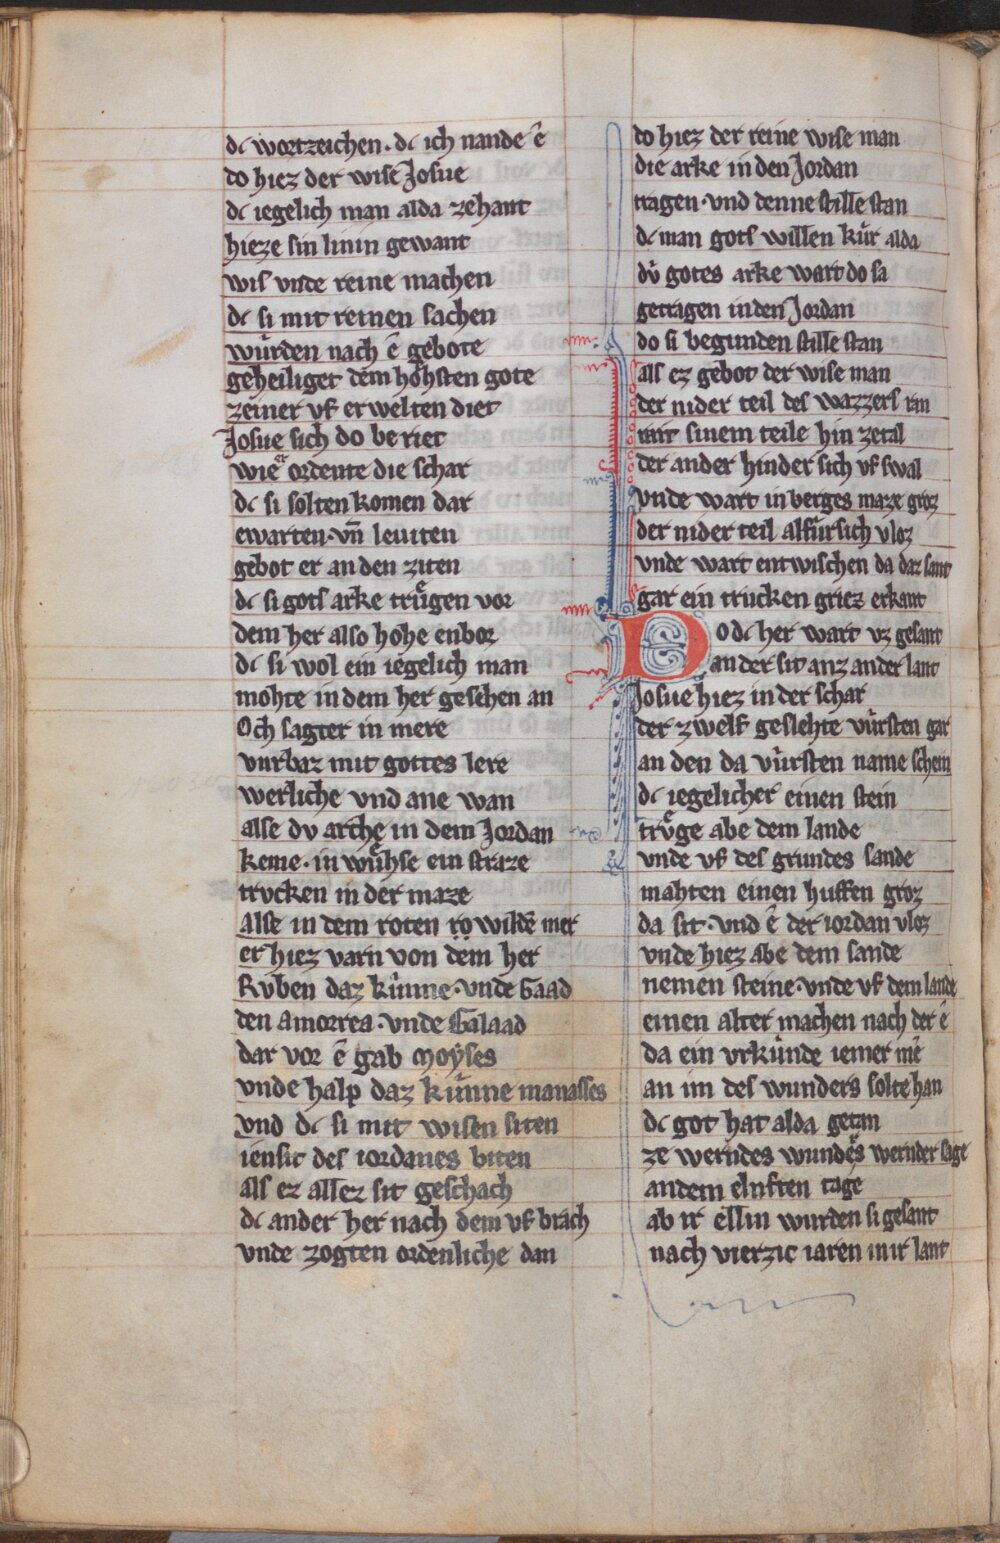 dc wortzeichen · dc ich nande ê
to hiez der wise Josue
dc iegelich man alda zehant
hieze sin linin gewant
wis vnde reine machen
dc si mit reinen sachen
wůrden nach ê gebote
geheiliget dem hőhsten gote
zeiner vf erwelten diet
Josue sich do beriet
wie er ordente die schar
dc si solten komen dar
ewarten · vn̄ leuiten
gebot er an den ziten
dc si gots arke trůgen vor
dem her also hohe enbor
dc si wol ein iegelich man
mohte in dem her gesehen an
Och sagter in mere
vurbaz mit gottes lere
werliche vnd ane wan
alse dv arche in dem Jordan
keme · in wůhse ein straze
trvcken in der maze
Alse in dem roten ro wildē mer
er hiez varn von dem her
Rvben daz kůnne · vnde Gaad
den Amorrea · vnde Galaad
dar vor ê gab Moẏses
vnde halp daz kůnne manasses
vnd dc si mit wisen siten
iensit des iordanes biten
als ez allez sit geschach
dc ander her nach dem vf brach
vnde zogten ordenliche dan
do hiez der reine wise man
die arke in den Jordan
tragen · vnd denne stille stan
dc man gots willen kůr alda
dv̊ gotes arke wart do sa
getragen in den Jordan
do si begunden stille stan
als ez gebot der wise man
der nider teil des wazzers ran
mit sinem teile hin zetal
der ander hinder sich vf swal
vnde wart in berges maze groz
der nider teil alfůr sich vloz
vnde wart entwischen da daz lant
gar ein trucken griez erkant
Do dc her wart vz gesant
ander sit anz ander lant
Josue hiez in der schar
der zwelf geslehte vůrsten gar
an den da vůrsten name schein
dc iegelicher einen stein
trv̊ge abe dem lande
vnde vf des grundes sande
mahten einen huffen groz
da sit · vnd ê der iordan vloz
vnde hiez abe dem sande
nemen steine · vnde vf dem lande
einen alter machen nach der ê
da ein vrkůnde iemer mê
an im des wunders solte han
dc got hat alda getan
ze werndes wundes wernder sage
an dem elnften tage
ab ir ellin wurden si gesant
nach vierzic iaren in ir lant